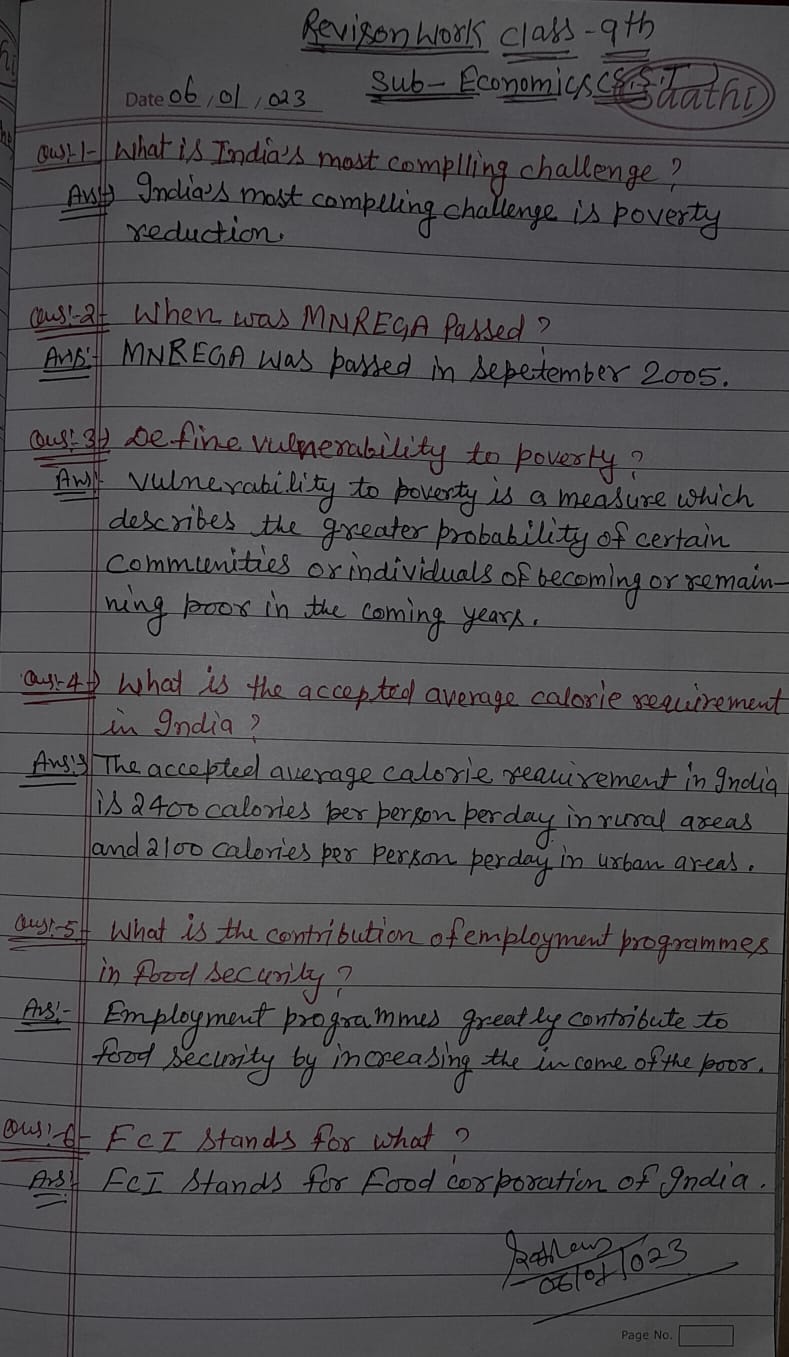 Revison work class - 9th
Date 06/01/023 Sub - Economics (S.S.T)
Saathi
Ques:-1- What is India's most complling challenge?
Ans:-) India's most compelling challenge is poverty
reduction.
Ques:-2- When was MNREGA Passed?
Ans:- MNREGA was passed in sepetember 2005.
Ques:-3-) Define vulnerability to poverty?
Ans:- vulnerability to poverty is a measure which
describes the greater probability of certain
communities or individuals of becoming or remain-
ning poor in the coming years.
Ques:-4-) What is the accepted average calorie requirement
in India?
Ans:-) The accepted average calorie requirement in India
is 2400 calories per person per day in rural areas
and 2100 calories per person perday in urban areas.
Ques:-5- What is the contribution of employment programmes
in food security?
Ans:- Employment programmes greatly contribute to
food security by increasing the income of the poor.
Ques:-6- FCI stands for what?
Ans:- FCI stands for Food corporation of India.
06/01/023
Page No.